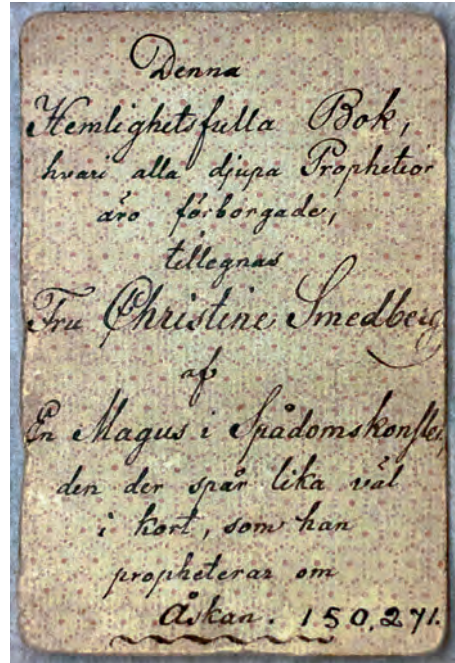 Denna
Hemlighetsfulla Bok,
hvari alla djupa Prophetior
äro förborgade,
tillegnas
Fru Christine Smedberg
af
En Magus i Spådomskonsten,
den der spår lika väl
i kort, som han
propheterar om
Åskan. 150,271.